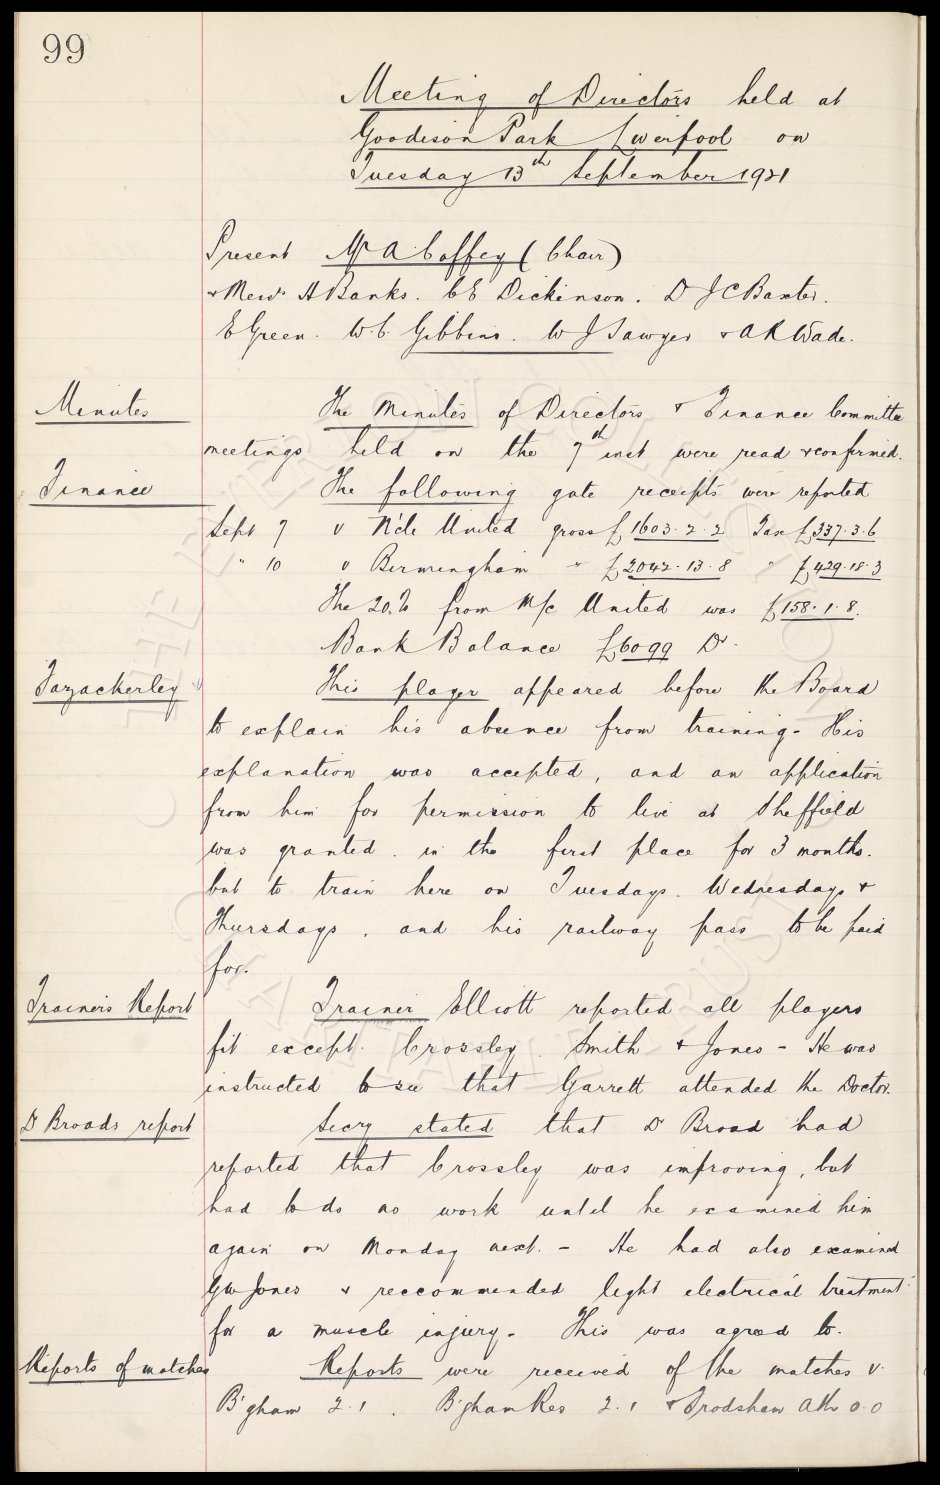 99
Meeting of Directors held at
Goodison Park Liverpool on
Tuesday 13th September 1921
Present Mr A Coffey (Chair)
& Messrs A Banks. C E Dickinson. Dr J C Baxter.
E Green. W C Gibbins. W J Sawyer & A R Wade.
Minutes
The Minutes of Directors & Finance Committee
meetings held on the 7th inst were read & confirmed.
Finance
The following gate receipts were reported
Sept 7 v N'cle United gross £1603.2.2 Tax £337.3.6
" 10 v Birmingham " £2042.13.8 " £429.18.3
The 20% from M/c United was £158.1.8.
Bank Balance £6099 Dr.
Fazackerley
This player appeared before the Board
to explain his absence from training - His
explanation was accepted, and an application
from him for permission to live at Sheffield
was granted. in the first place for 3 months.
but to train here on Tuesdays. Wednesdays &
Thursdays, and his railway pass to be paid
for.
Trainers Report
Trainer Elliott reported all players
fit except. Crossley. Smith & Jones - He was
instructed to see that Garrett attended the Doctor.
Dr Broads report
Secry stated that Dr Broad had
reported that Crossley was improving, but
had to do no work until he examined him
again on Monday next. - He had also examined
GW Jones & reccommended light electrical treatment
for a muscle injury. This was agreed to.
Reports of matches
Reports were received of the matches v.
B'gham 2.1. B'gham Res 2.1 & Frodsham Ath 0.0